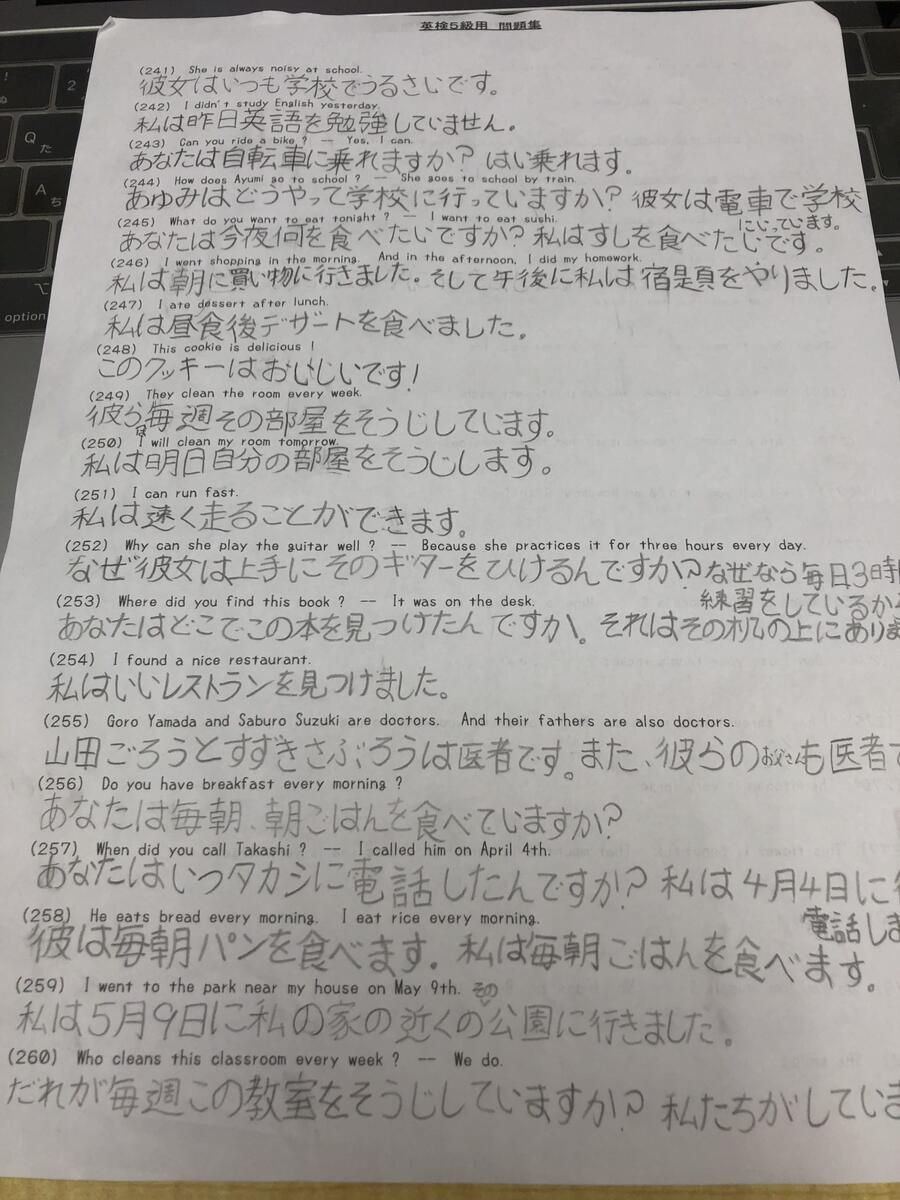 英検5級用 問題集
(241) She is always noisy at school.
彼女はいつも学校でうるさいです。
(242) I didn't study English yesterday.
私は昨日英語を勉強していません。
(243) Can you ride a bike ? -- Yes, I can.
あなたは自転車に乗れますか? はい乗れます。
(244) How does Ayumi go to school ? -- She goes to school by train.
あゆみはどうやって学校に行っていますか? 彼女は電車で学校
にいっています。
(245) What do you want to eat tonight ? -- I want to eat sushi.
あなたは今夜何を食べたいですか? 私はすしを食べたいです。
(246) I went shopping in the morning. And in the afternoon, I did my homework.
私は朝に買い物に行きました。そして午後に私は宿題をやりました。
(247) I ate dessert after lunch.
私は昼食後デザートを食べました。
(248) This cookie is delicious !
このクッキーはおいしいです!
(249) They clean the room every week.
彼らは毎週その部屋をそうじしています。
(250) I will clean my room tomorrow.
私は明日自分の部屋をそうじします。
(251) I can run fast.
私は速く走ることができます。
(252) Why can she play the guitar well ? -- Because she practices it for three hours every day.
なぜ彼女は上手にそのギターをひけるんですか?なぜなら毎日3時
練習をしているか
(253) Where did you find this book ? -- It was on the desk.
あなたはどこでこの本を見つけたんですか。それはその机の上にありま
(254) I found a nice restaurant.
私はいいレストランを見つけました。
(255) Goro Yamada and Saburo Suzuki are doctors. And their fathers are also doctors.
山田ごろうとすずきさぶろうは医者です。また、彼らのお父さんも医者
(256) Do you have breakfast every morning ?
あなたは毎朝、朝ごはんを食べていますか?
(257) When did you call Takashi ? -- I called him on April 4th.
あなたはいつタカシに電話したんですか? 私は4月4日に
電話しま
(258) He eats bread every morning. I eat rice every morning.
彼は毎朝パンを食べます。私は毎朝ごはんを食べます。
(259) I went to the park near my house on May 9th.
私は5月9日に私の家の近くのその公園に行きました。
(260) Who cleans this classroom every week ? -- We do.
だれが毎週この教室をそうじしていますか? 私たちがしていま